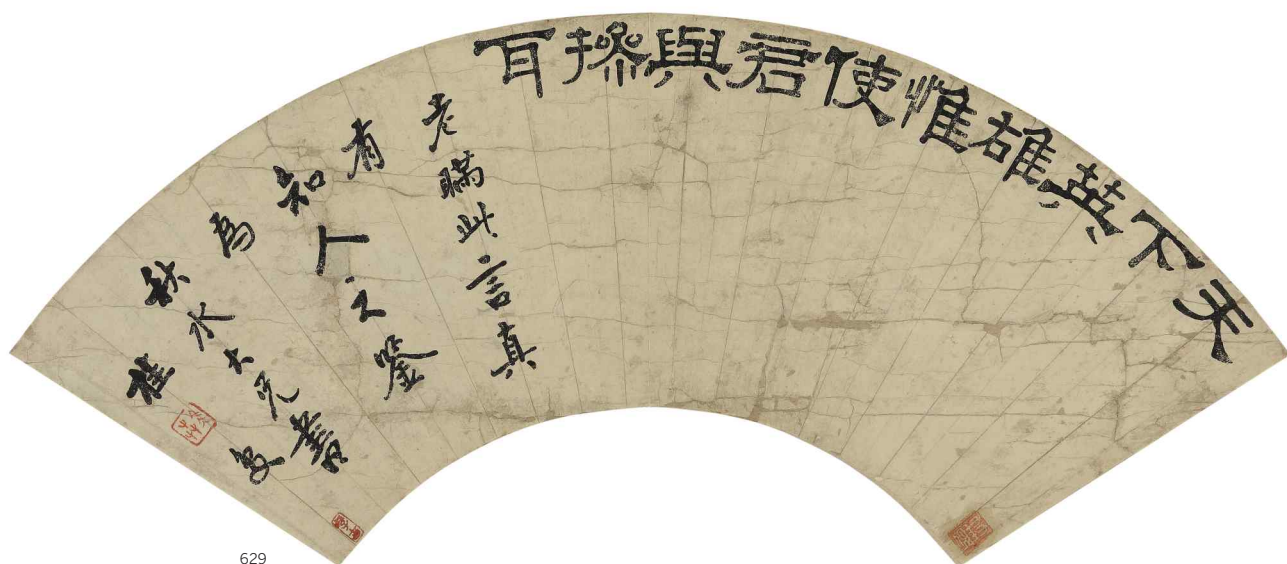 天下英雄惟使君與操耳
老瞞此言真
有知人之鑒
為
秋水大兄書
桂馥
629